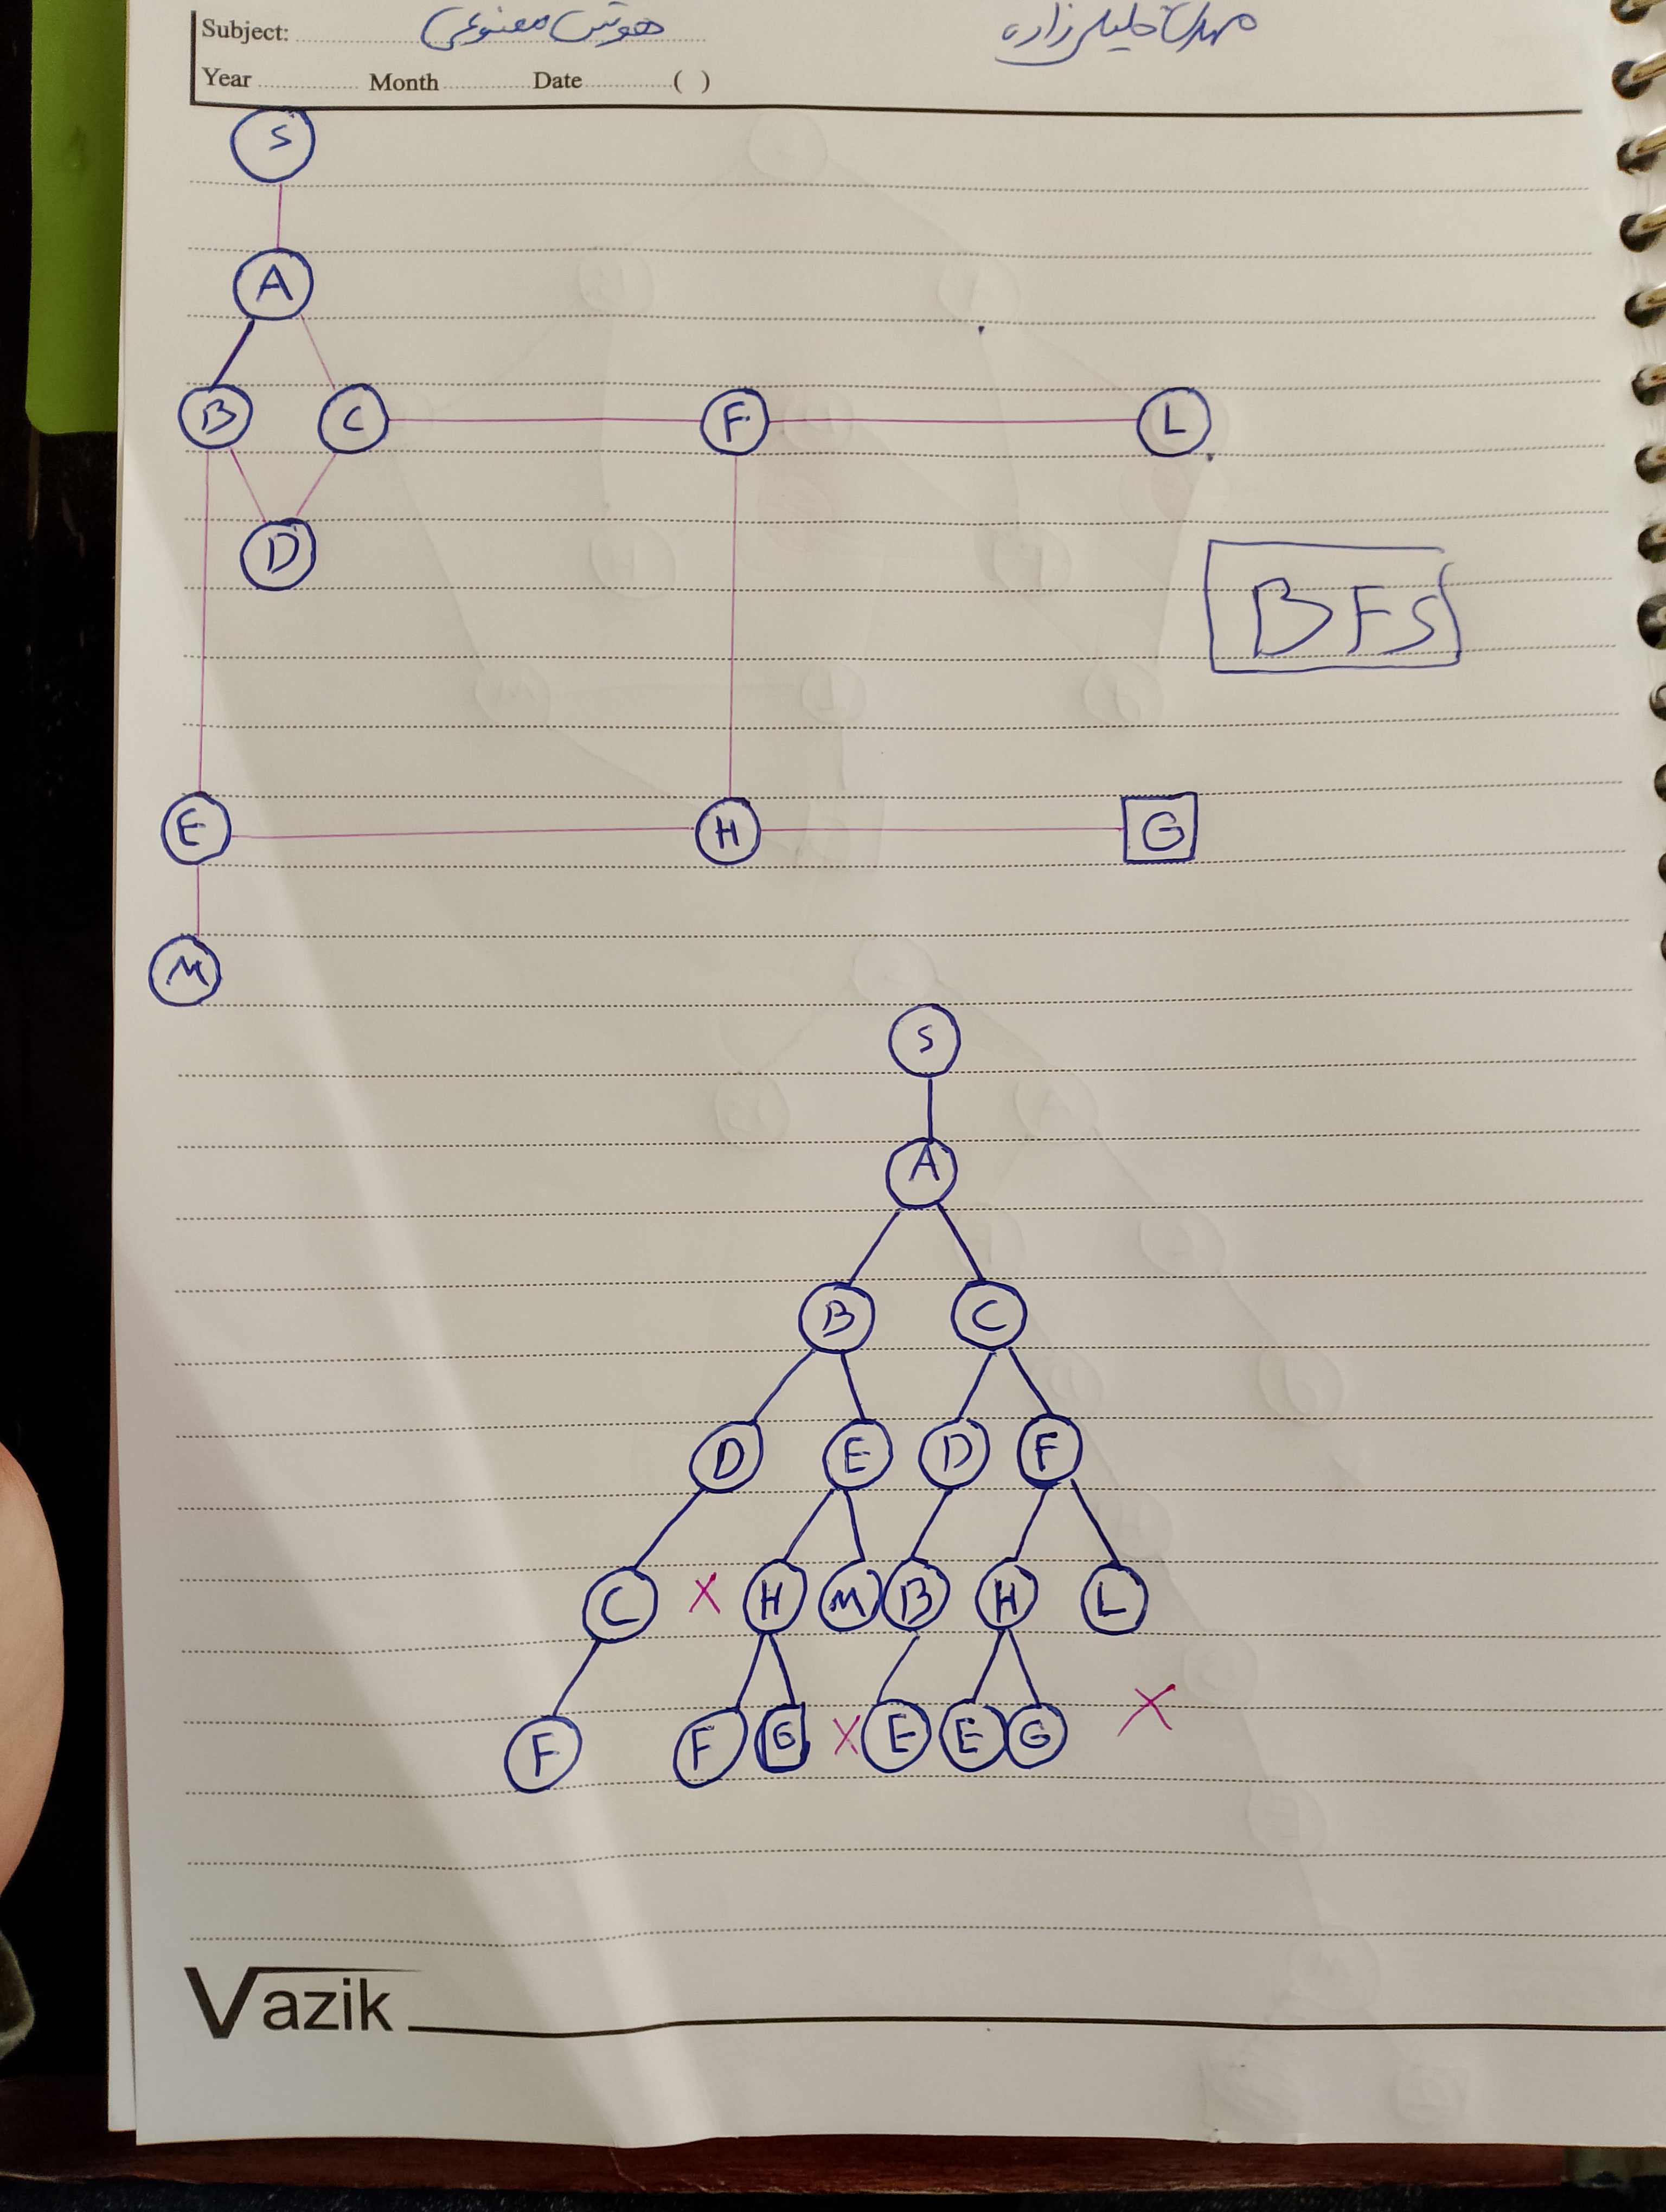 Subject: هوش مصنوعی
مهران جلیل زاده
Year Month Date ( )
S
A
B C F L
D
BFS
E H G
M
S
A
B C
D E D F
C X H M B H L
F F G X E E G X
Vazik